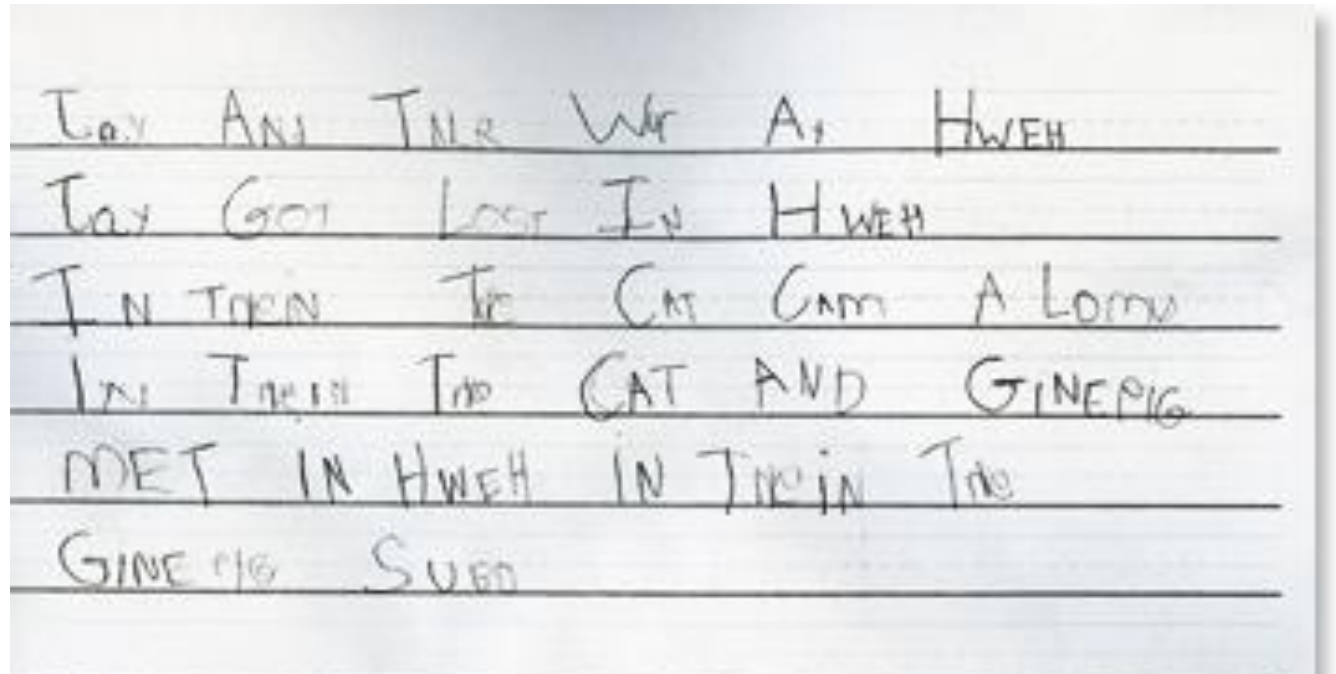 Tay AND TNR Wr At HWEH
Tay GOT LOST IN HWEH
IN THEN The CAT CAM A LOMN
IN THEIN THe CAT AND GINEPIG
MET IN HWEH IN THeIN THe
GINEPIG